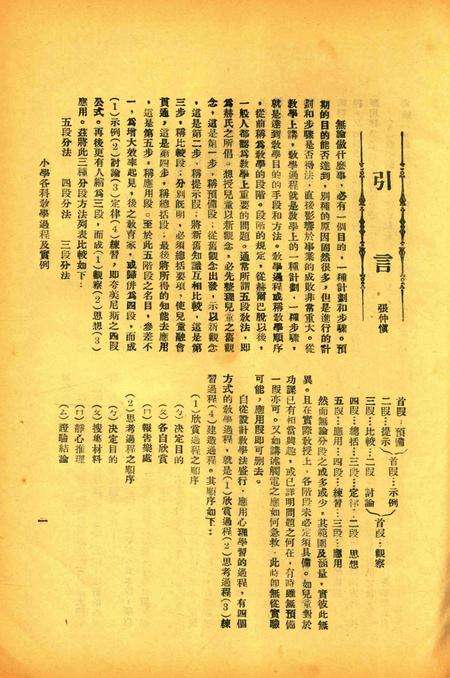 引言
張仲愼
無論做什麼事，必有一個目的，一種計劃和步驟。預
期的目的能否達到，別種的原因固然很多，但是進行的計
劃和步驟是否得法，直接影響於事業的成敗非常重大。從
教學上講，教學過程就是教學上的一種計劃，一種步驟，
就是達到教學目的的手段和方法。教學過程或稱教學順序
，從前稱爲教學的段階。段階的規定，從赫爾巴脫以後，
一般人都認爲教學上重要的問題。通常所謂五段教法，即
爲赫氏之所倡。想授兒童以新觀念，必先整理兒童之舊觀
念，這是第一步，稱預備段；從舊觀念出發，示以新觀念
，這是第二步，稱提示段；將新舊知識互相比較，這是第
三步，稱比較段；分別旣明，必須總括要項，使兒童融會
貫通，這是第四步，稱總括段；最後將所得的知能去應用
，這是第五步，稱應用段。至於此五階段之名目，參差不
一，爲增大效率起見，後之教育家，或歸併爲四段，而成
（1）示例（2）討論（3）定律（4）練習，即麥美尼斯之四段
公式。再後更有人縮爲三段，而成（1）觀察（2）思想（3）
應用。茲將此三種分段方法列表比較如下：
五段分法　四段分法　三段分法
首段…預備
二段…提示
首段…示例
首段…觀察
三段…比較…二段…討論
四段…總括…三段…定律…二段…思想
五段…應用…四段…練習…三段…應用
然而無論分段之或多或少，其範圍及涵量，實彼此無
異。且在實際教授上，各階段未必定須具備。如兒童對於
功課已有相當興趣，或已詳明問題之何在，有時雖無預備
一段亦可。又如講述觸電之應如何急救，此時即無從實驗
可能，應用段即可刪去。
自從設計教學法盛行，應用心理學習的過程，有四個
方式的教學過程，就是（1）欣賞過程（2）思考過程（3）練
習過程（4）建造過程。其順序如下：
（1）欣賞過程之順序
（ㄅ）決定目的
（ㄆ）各自欣賞
（ㄇ）報告樂處
（2）思考過程之順序
（ㄅ）決定目的
（ㄆ）搜集材料
（ㄇ）靜心推理
（ㄈ）證驗結論
小學各科教學過程及實例
一